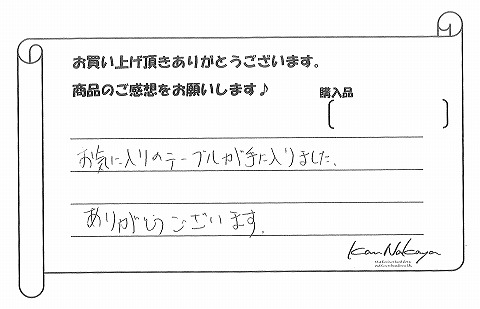 お買い上げ頂きありがとうございます。
商品のご感想をお願いします♪
購入品
お気に入りのテーブルが手に入りました、
ありがとうございます.
Kan Nakaya